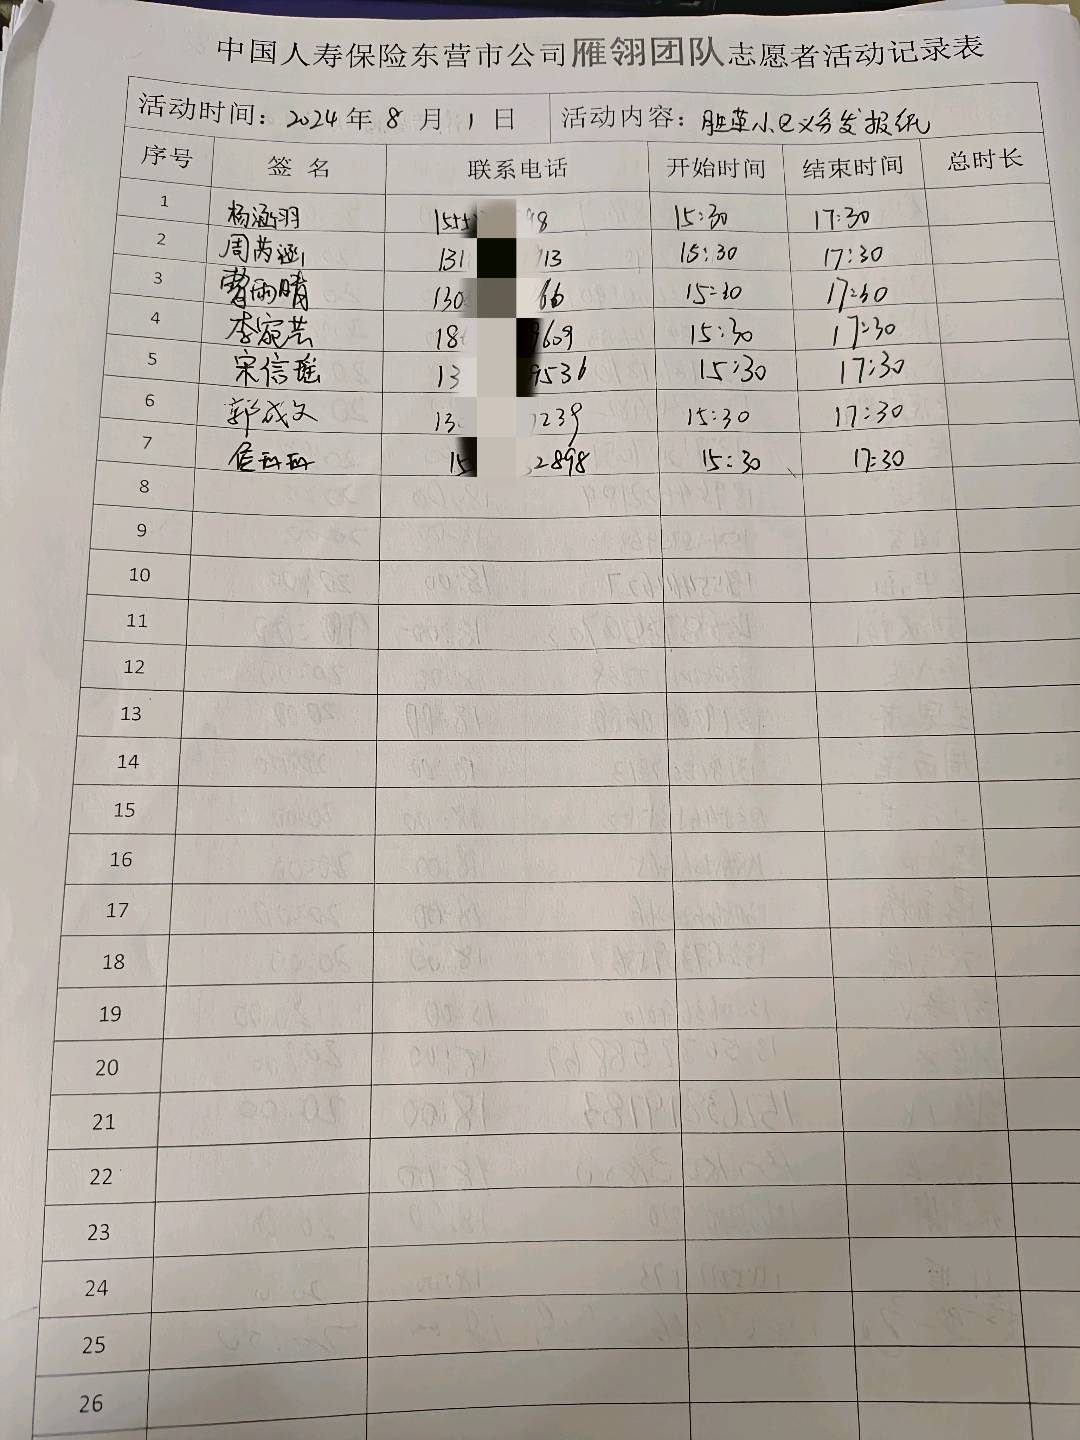 中国人寿保险东营市公司雁翎团队志愿者活动记录表
活动时间：2024年8月1日 活动内容：胆革小区义务发报纸
序号 签名 联系电话 开始时间 结束时间 总时长
1 杨涵羽 155 98 15:30 17:30
2 周芮涵 131 913 15:30 17:30
3 曹雨晴 130 66 15:30 17:30
4 李宛芸 18 9609 15:30 17:30
5 宋信瑶 13 9536 15:30 17:30
6 郭成文 13 7239 15:30 17:30
7 15 2898 15:30 17:30
8
9
10
11
12
13
14
15
16
17
18
19
20
21
22
23
24
25
26